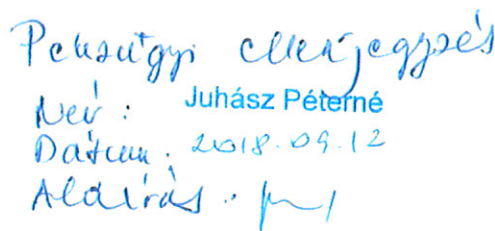 Pénzügyi ellenjegyzés
Név: Juhász Péterné
Dátum: 2018.09.12
Aláírás: